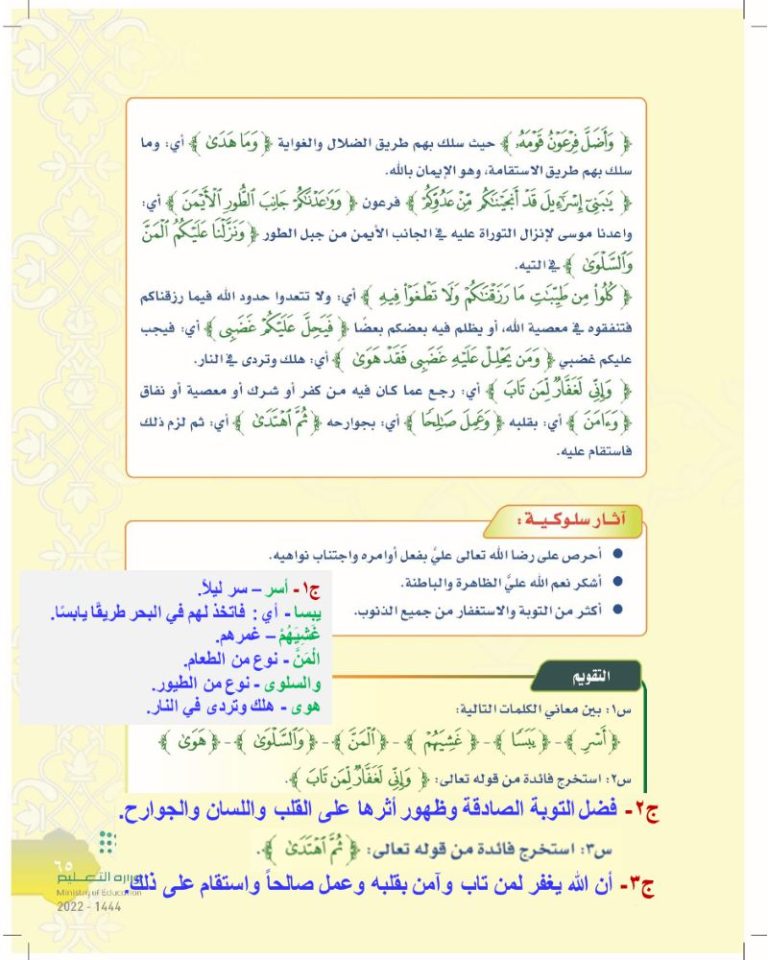 ﴿ وَأَضَلَّ فِرْعَوْنُ قَوْمَهُۥ ﴾ حيث سلك بهم طريق الضلال والغواية ﴿ وَمَا هَدَىٰ ﴾ أي: وما
سلك بهم طريق الاستقامة، وهو الإيمان بالله.
﴿ يَٰبَنِىٓ إِسْرَٰٓءِيلَ قَدْ أَنجَيْنَٰكُم مِّنْ عَدُوِّكُمْ ﴾ فرعون ﴿ وَوَٰعَدْنَٰكُمْ جَانِبَ ٱلطُّورِ ٱلْأَيْمَنَ ﴾ أي:
واعدنا موسى لإنزال التوراة عليه في الجانب الأيمن من جبل الطور ﴿ وَنَزَّلْنَا عَلَيْكُمُ ٱلْمَنَّ
وَٱلسَّلْوَىٰ ﴾ في التيه.
﴿ كُلُوا۟ مِن طَيِّبَٰتِ مَا رَزَقْنَٰكُمْ وَلَا تَطْغَوْا۟ فِيهِ ﴾ أي: ولا تتعدوا حدود الله فيما رزقناكم
فتنفقوه في معصية الله، أو يظلم فيه بعضكم بعضًا ﴿ فَيَحِلَّ عَلَيْكُمْ غَضَبِى ﴾ أي: فيجب
عليكم غضبي ﴿ وَمَن يَحْلِلْ عَلَيْهِ غَضَبِى فَقَدْ هَوَىٰ ﴾ أي: هلك وتردى في النار.
﴿ وَإِنِّى لَغَفَّارٌ لِّمَن تَابَ ﴾ أي: رجع عما كان فيه من كفر أو شرك أو معصية أو نفاق
﴿ وَءَامَنَ ﴾ أي: بقلبه ﴿ وَعَمِلَ صَٰلِحًا ﴾ أي: بجوارحه ﴿ ثُمَّ ٱهْتَدَىٰ ﴾ أي: ثم لزم ذلك
فاستقام عليه.
آثار سلوكية:
● أحرص على رضا الله تعالى عليَّ بفعل أوامره واجتناب نواهيه.
● أشكر نعم الله عليَّ الظاهرة والباطنة.
● أكثر من التوبة والاستغفار من جميع الذنوب.
ج١- أسر – سر ليلاً.
يبسا - أي : فاتخذ لهم في البحر طريقًا يابسًا.
غَشِيَهُمْ – غمرهم.
الْمَنَّ - نوع من الطعام.
والسلوى - نوع من الطيور.
هوى - هلك وتردى في النار.
التقويم
س١: بين معاني الكلمات التالية:
﴿ أَسْرِ ﴾ - ﴿ يَبَسًا ﴾ - ﴿ غَشِيَهُمْ ﴾ - ﴿ ٱلْمَنَّ ﴾ - ﴿ وَٱلسَّلْوَىٰ ﴾ - ﴿ هَوَىٰ ﴾
س٢: استخرج فائدة من قوله تعالى: ﴿ وَإِنِّى لَغَفَّارٌ لِّمَن تَابَ ﴾.
ج٢- فضل التوبة الصادقة وظهور أثرها على القلب واللسان والجوارح.
س٣: استخرج فائدة من قوله تعالى: ﴿ ثُمَّ ٱهْتَدَىٰ ﴾.
ج٣- أن الله يغفر لمن تاب وآمن بقلبه وعمل صالحاً واستقام على ذلك.
٦٥
وزارة التعليم
Ministry of Education
2022 - 1444